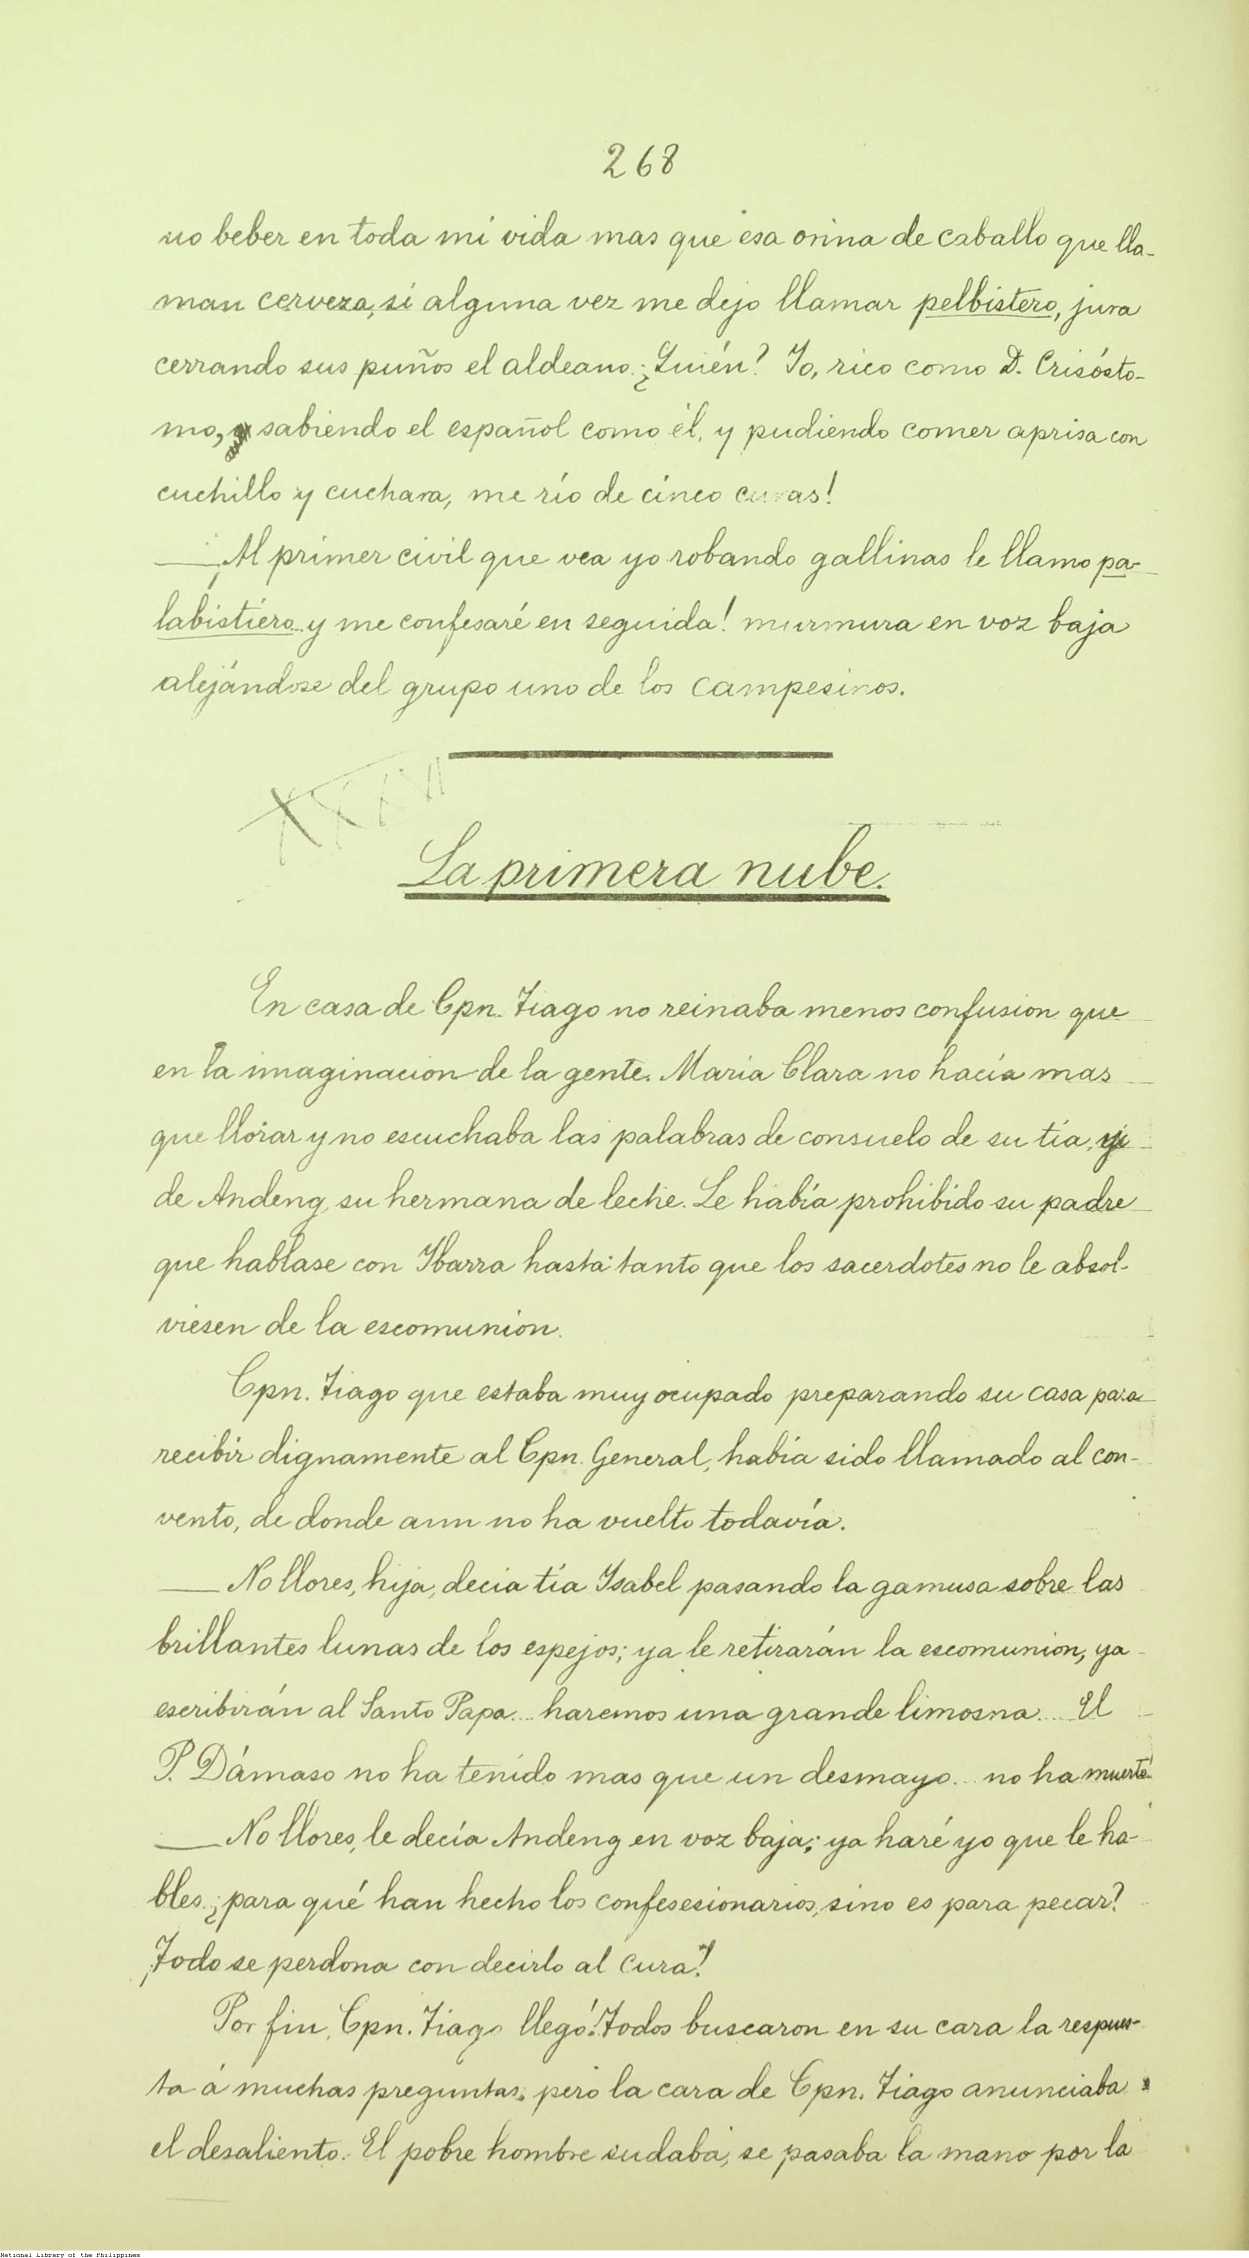 268
no beber en toda mi vida mas que esa orina de caballo que lla-
man cerveza, si alguna vez me dejo llamar pelbistero, jura
cerrando sus puños el aldeano. ¿Quién? Yo, rico como D. Crisósto-
mo, sabiendo el español como él, y pudiendo comer aprisa con
cuchillo y cuchara, me río de cinco curas!
— ¡Al primer civil que vea yo robando gallinas le llamo pa-
labistiero y me confesaré en seguida! murmura en voz baja
alejándose del grupo uno de los campesinos.
XXXVI
La primera nube.
En casa de Cpn. Tiago no reinaba menos confusion que
en la imaginacion de la gente. María Clara no hacía mas
que llorar y no escuchaba las palabras de consuelo de su tía, y
de Andeng, su hermana de leche. Le había prohibido su padre
que hablase con Ybarra hasta tanto que los sacerdotes no le absol-
viesen de la escomunion.
Cpn. Tiago que estaba muy ocupado preparando su casa para
recibir dignamente al Cpn. General, había sido llamado al con-
vento, de donde aun no ha vuelto todavía.
— No llores, hija, decia tía Ysabel pasando la gamusa sobre las
brillantes lunas de los espejos; ya le retirarán la escomunion, ya
escribirán al Santo Papa... haremos una grande limosna... El
P. Dámaso no ha tenido mas que un desmayo... no ha muerto!
— No llores, le decía Andeng en voz baja; ya haré yo que le ha-
bles. ¿para qué han hecho los confesesionarios, sino es para pecar?
¡Todo se perdona con decirlo al cura!
Por fin, Cpn. Tiago llegó! Todos buscaron en su cara la respues-
ta á muchas preguntas, pero la cara de Cpn. Tiago anunciaba
el desaliento. El pobre hombre sudaba, se pasaba la mano por la
National Library of the Philippines